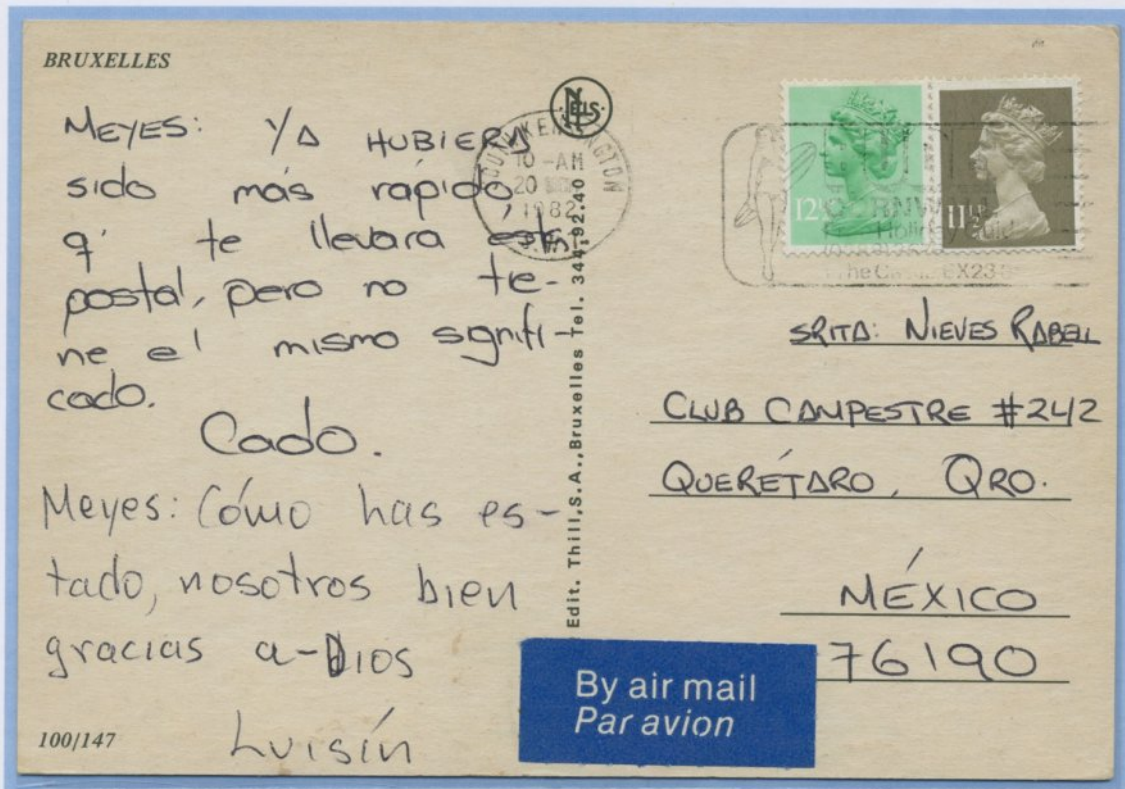 BRUXELLES
MEYES: YA HUBIERA
sido más rápido,
q' te llevara esta
postal, pero no te-
ne el mismo signifi-
cado.
Cado.
Meyes: Cómo has es-
tado, nosotros bien
gracias a-Dios
Luisín
100/147
NELS
SOUTH KENSINGTON
10-AM
20
1982
S.W.7
Edit. Thill, S.A., Bruxelles Tel. 344.92.40
12½P
11½P
The
EX23
SRITA: NIEVES RABELL
CLUB CAMPESTRE #242
QUERÉTARO, QRO.
MÉXICO
76190
By air mail
Par avion